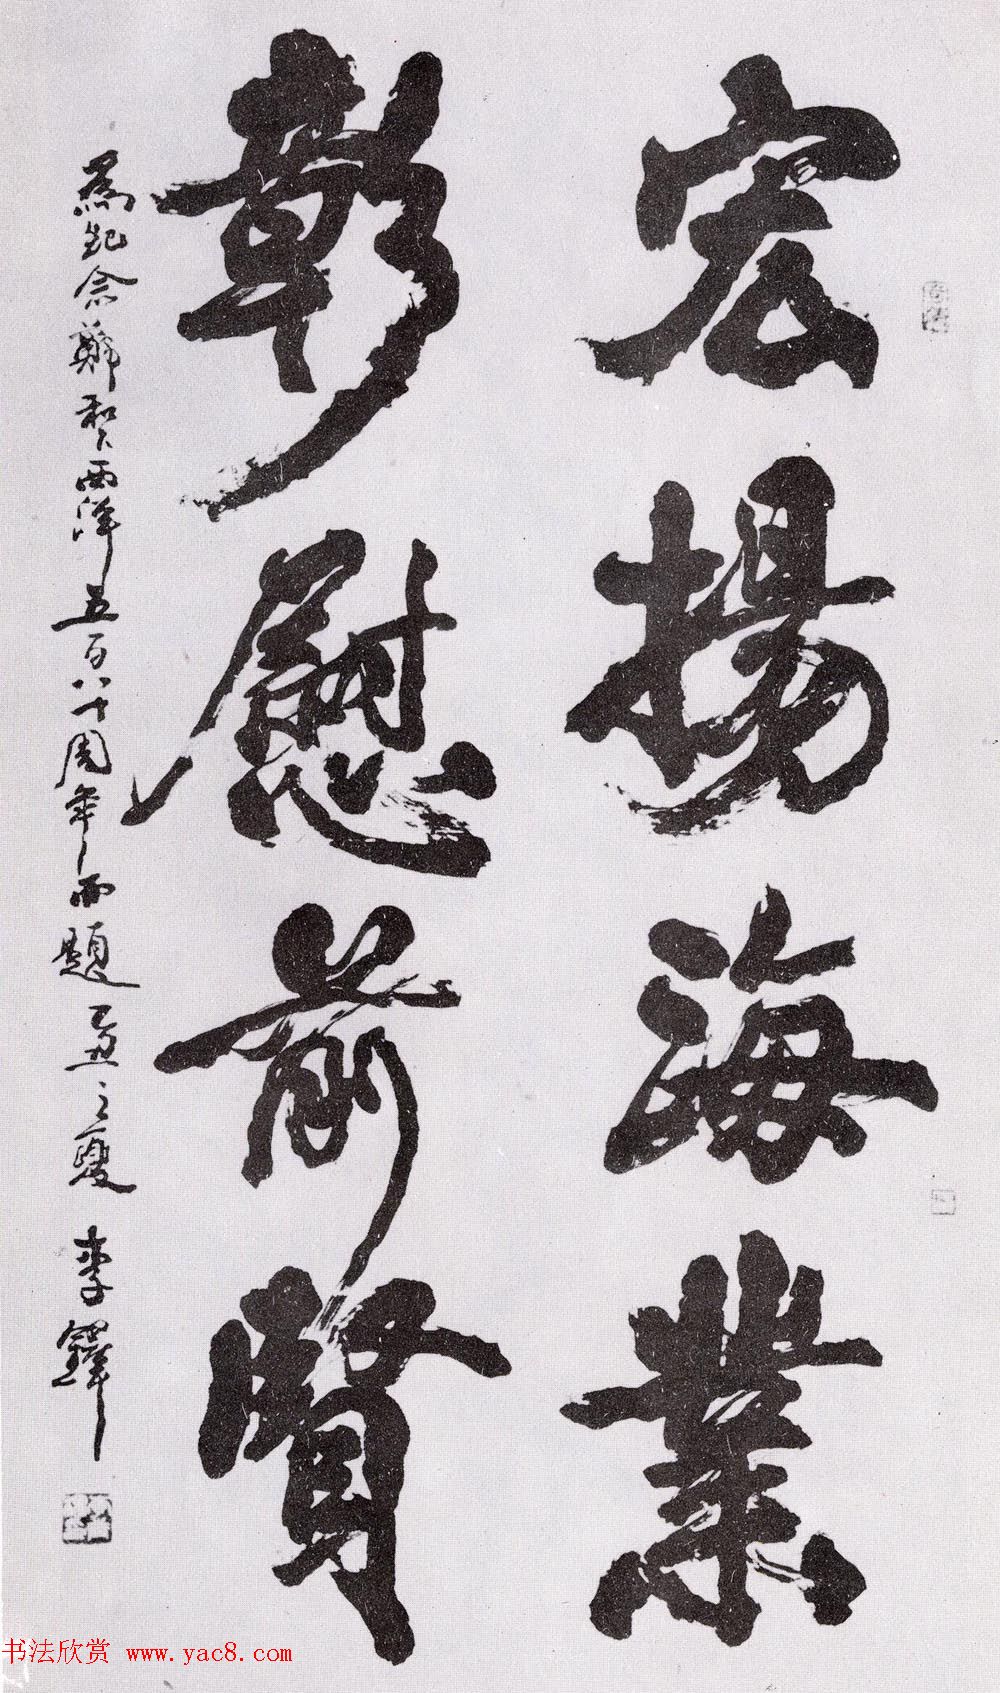 宏揚海業
彰慰前賢
為紀念鄭和下西洋五百八十周年而題 孟之夏 李鐸
书法欣赏 www.yac8.com